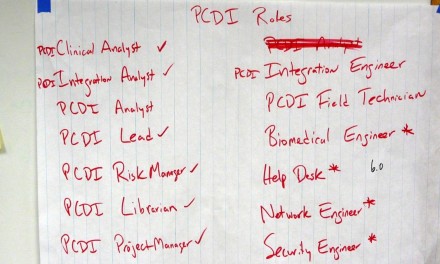 PCDI Roles
PCDI Clinical Analyst ✓
PCDI Integration Analyst ✓
PCDI Analyst
PCDI Lead ✓
PCDI Risk Manager ✓
PCDI Librarian ✓
PCDI Project Manager ✓
PCDI Integration Engineer
PCDI Field Technician
Biomedical Engineer *
Help Desk * 6.0
Network Engineer *
Security Engineer *